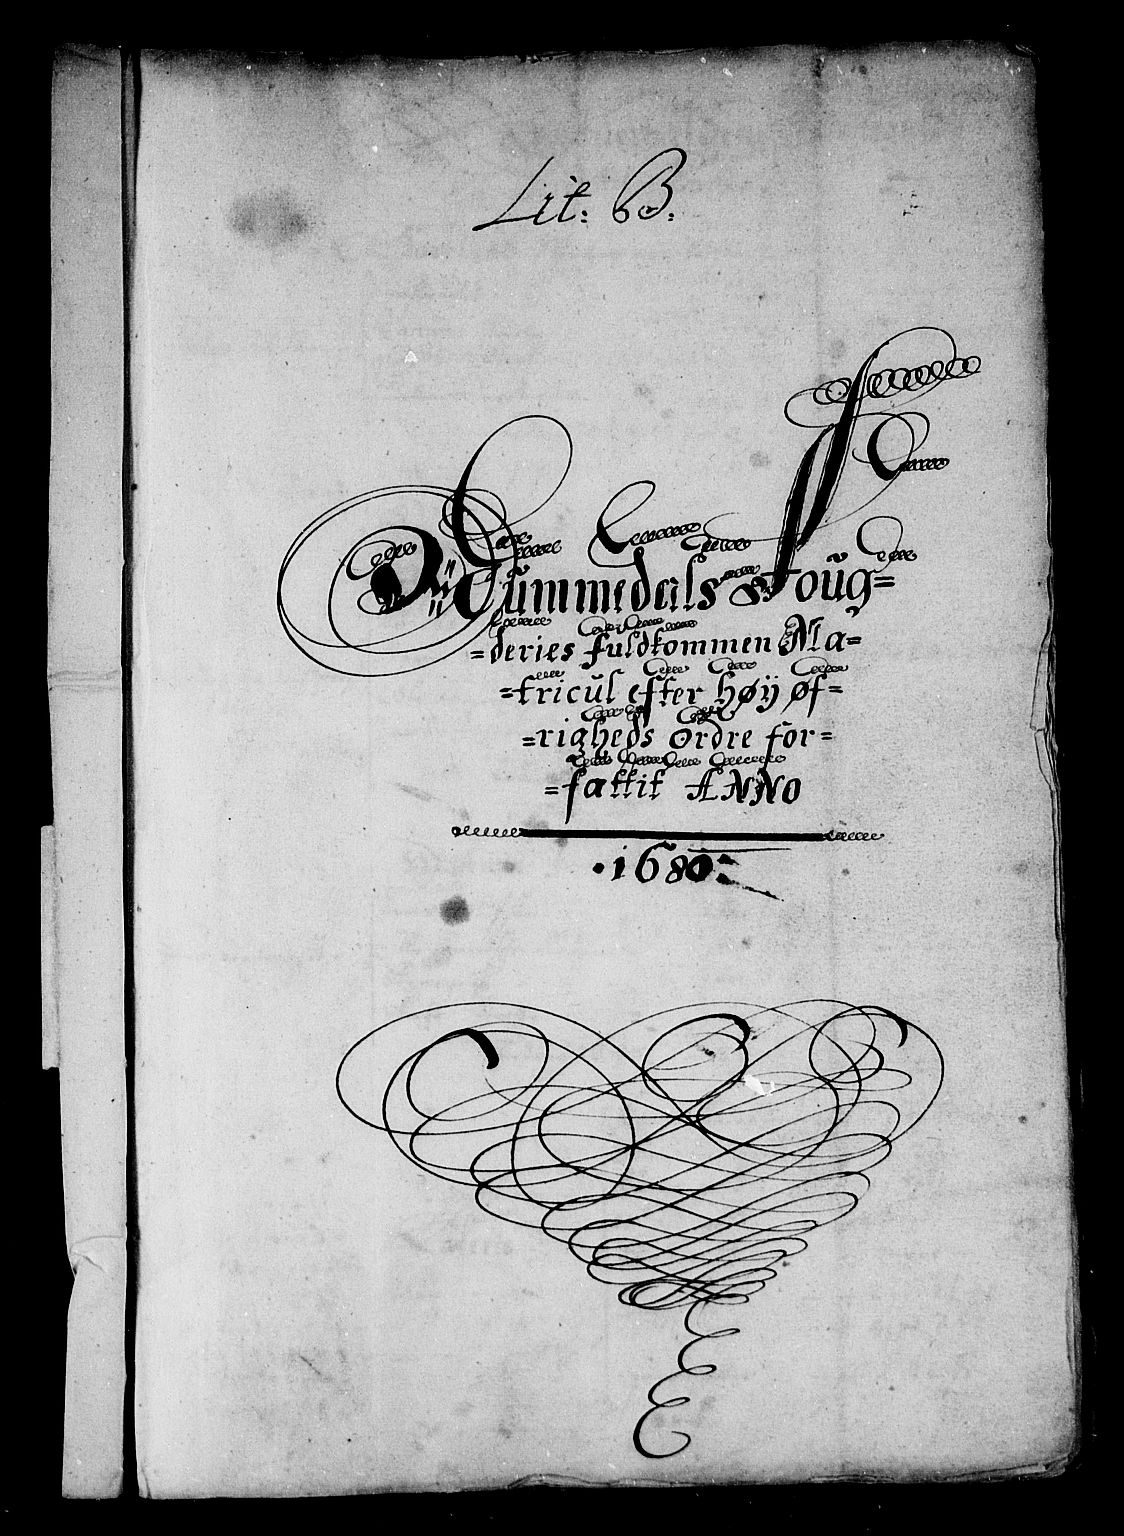 Lit: B:
Nummedals Foug=
=deries fuldkommen Ma=
=tricul efter høÿ øf=
=righeds Ordre for=
=fattit ANNO
·1680: